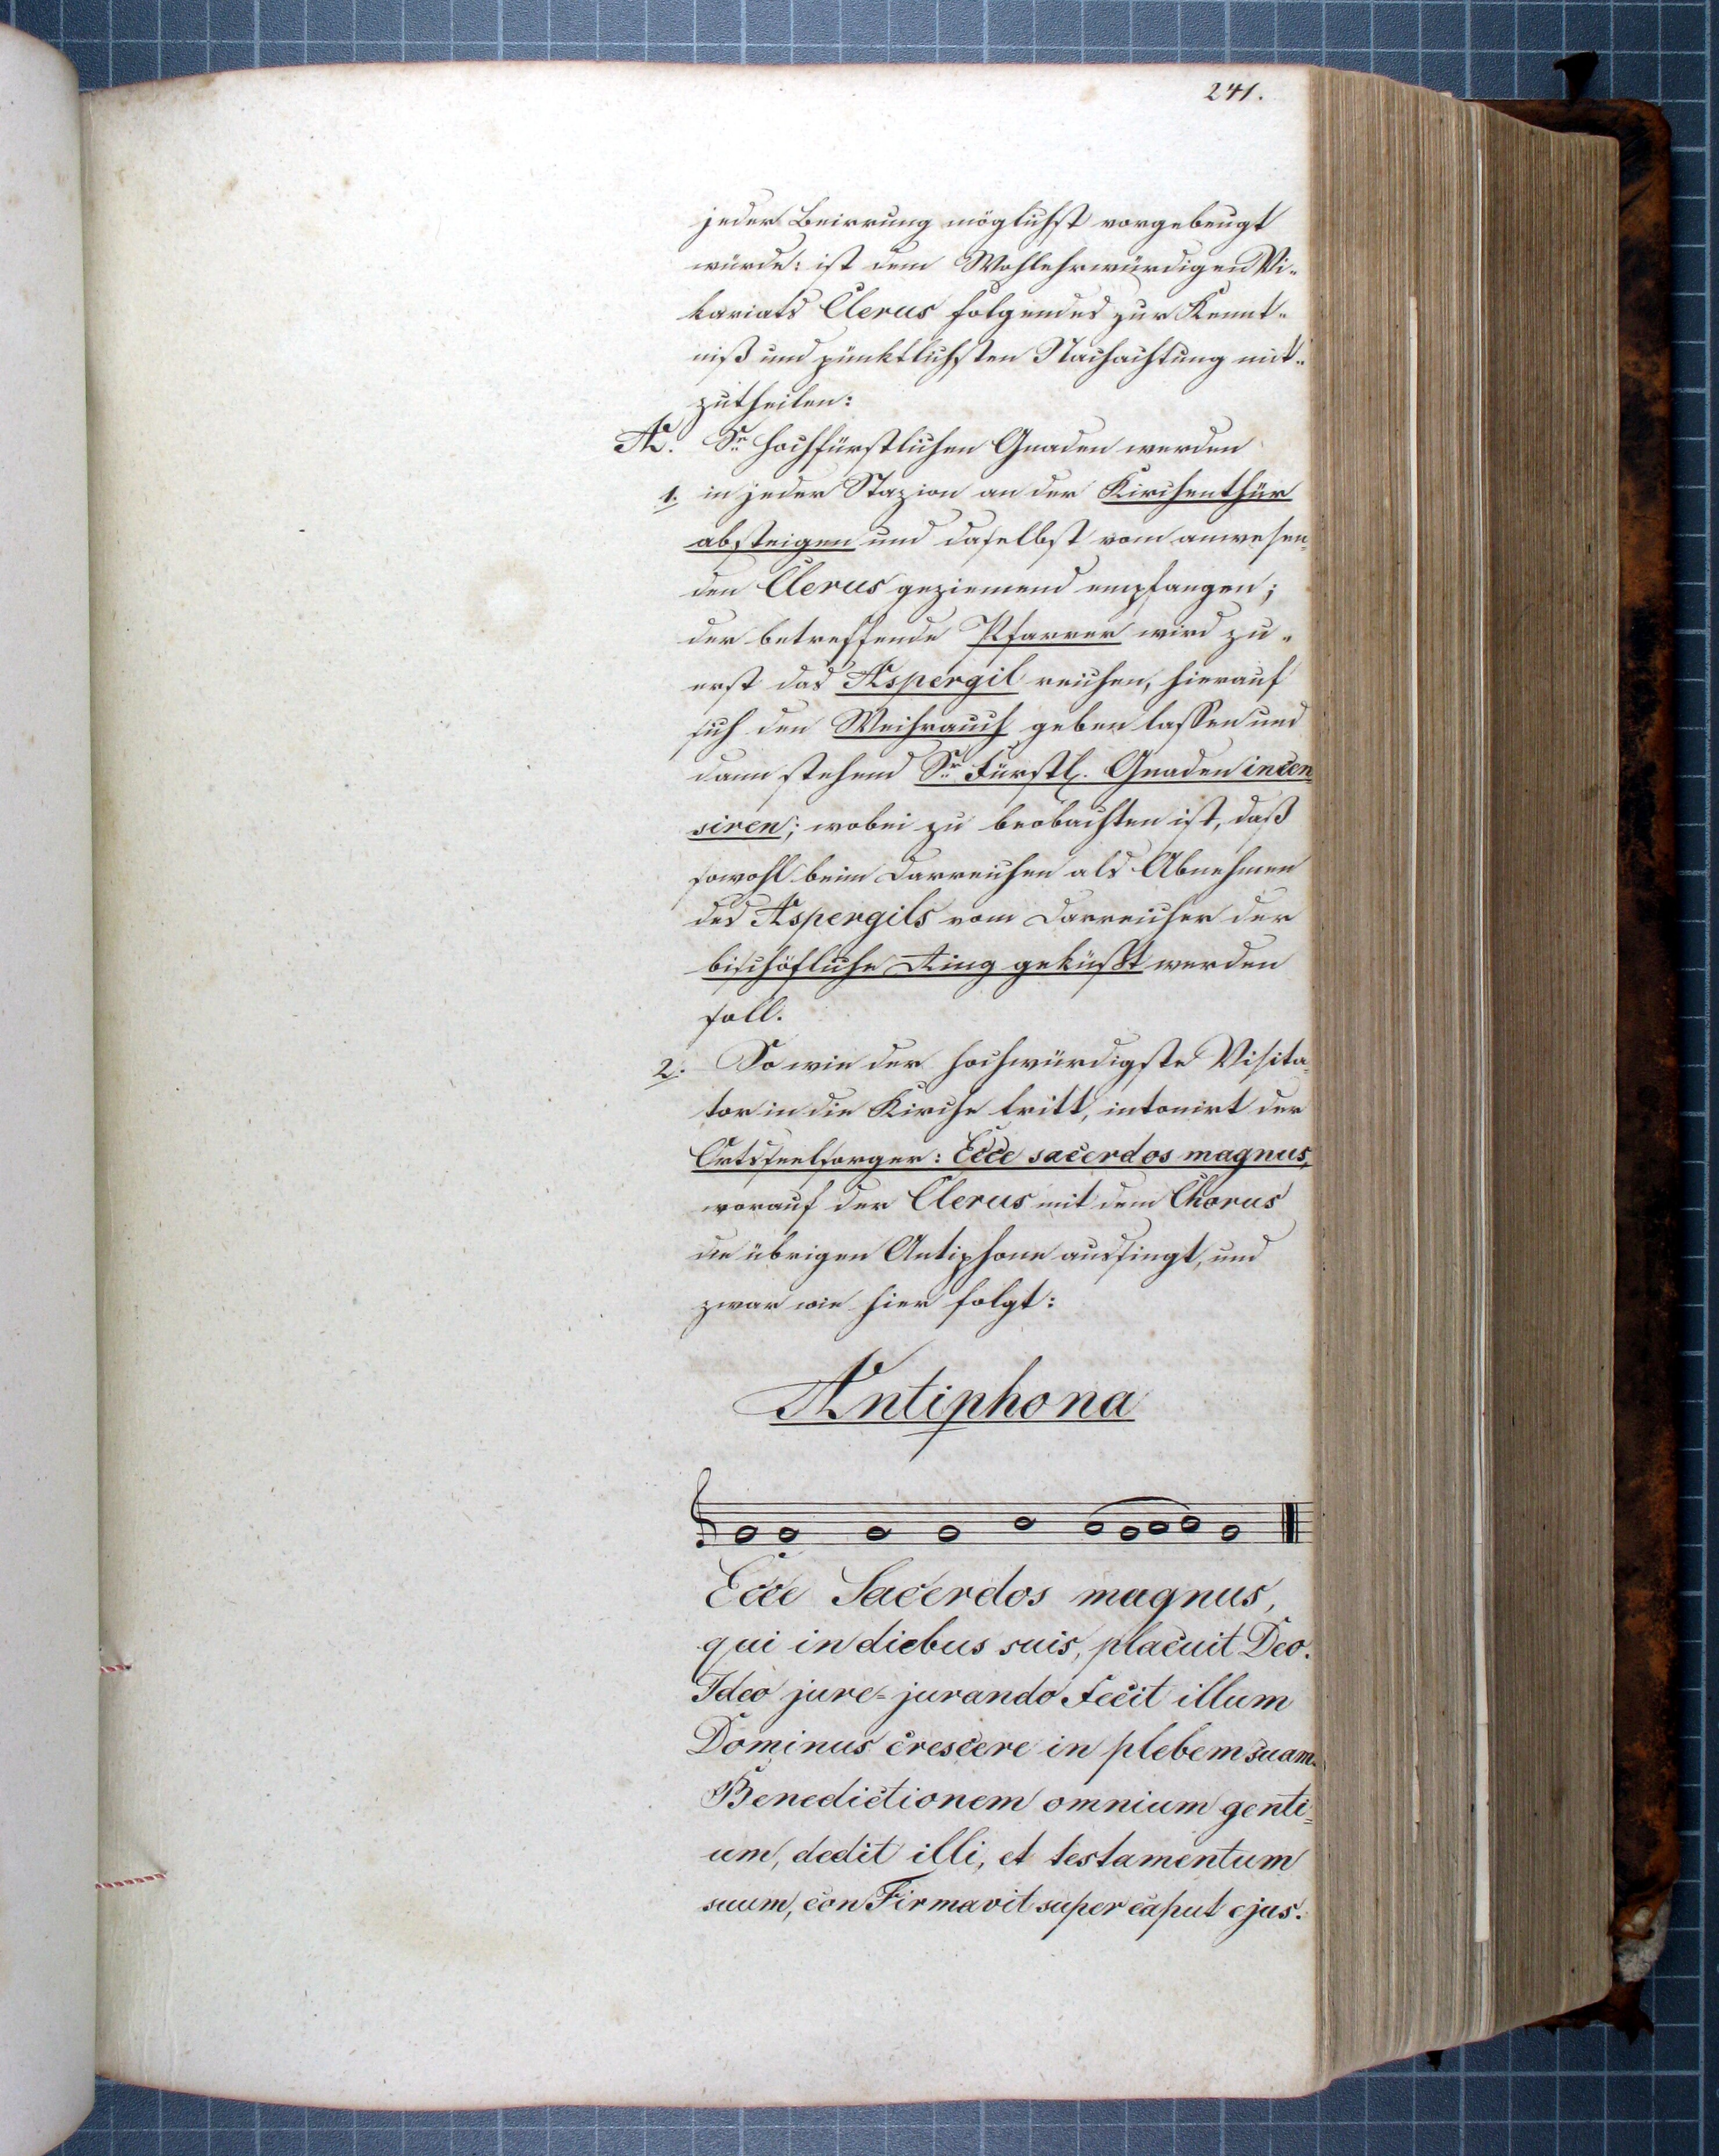 241.
jeder Beirrung möglichst vorgebeugt
würde: ist dem Wohlehrwürdigen Vi-
kariats Clerus folgendes zur Kennt-
niß und pünktlichsten Nachachtung mit-
zutheilen:
A. Sr. Hochfürstlichen Gnaden werden
1. in jeder Stazion an der Kirchenthür
absteigen und daselbst vom anwesen-
den Clerus geziemend empfangen;
der betreffende Pfarrer wird zu-
erst das Aspergil reichen, hierauf
sich den Weihrauch geben lassen und
dann stehend Sr. Fürstl. Gnaden incen-
siren; wobei zu beobachten ist, daß
sowohl beim Darreichen als Abnehmen
des Aspergils vom Darreicher der
bischöfliche Ring geküßt werden
soll.
2. So wie der hochwürdigste Visita-
tor in die Kirche tritt, intonirt der
Ortsseelsorger: Ecce sacerdos magnus,
worauf der Clerus mit dem Chorus
die übrigen Antiphone aussingt, und
zwar wie hier folgt:
Antiphona
Ecce Sacerdos magnus,
qui in diebus suis, placuit Deo.
Ideo jure-jurando fecit illum
Dominus crescere in plebem suam.
Benedictionem omnium genti-
um, dedit illi, et testamentum
suum, conFirmavit super caput ejus.